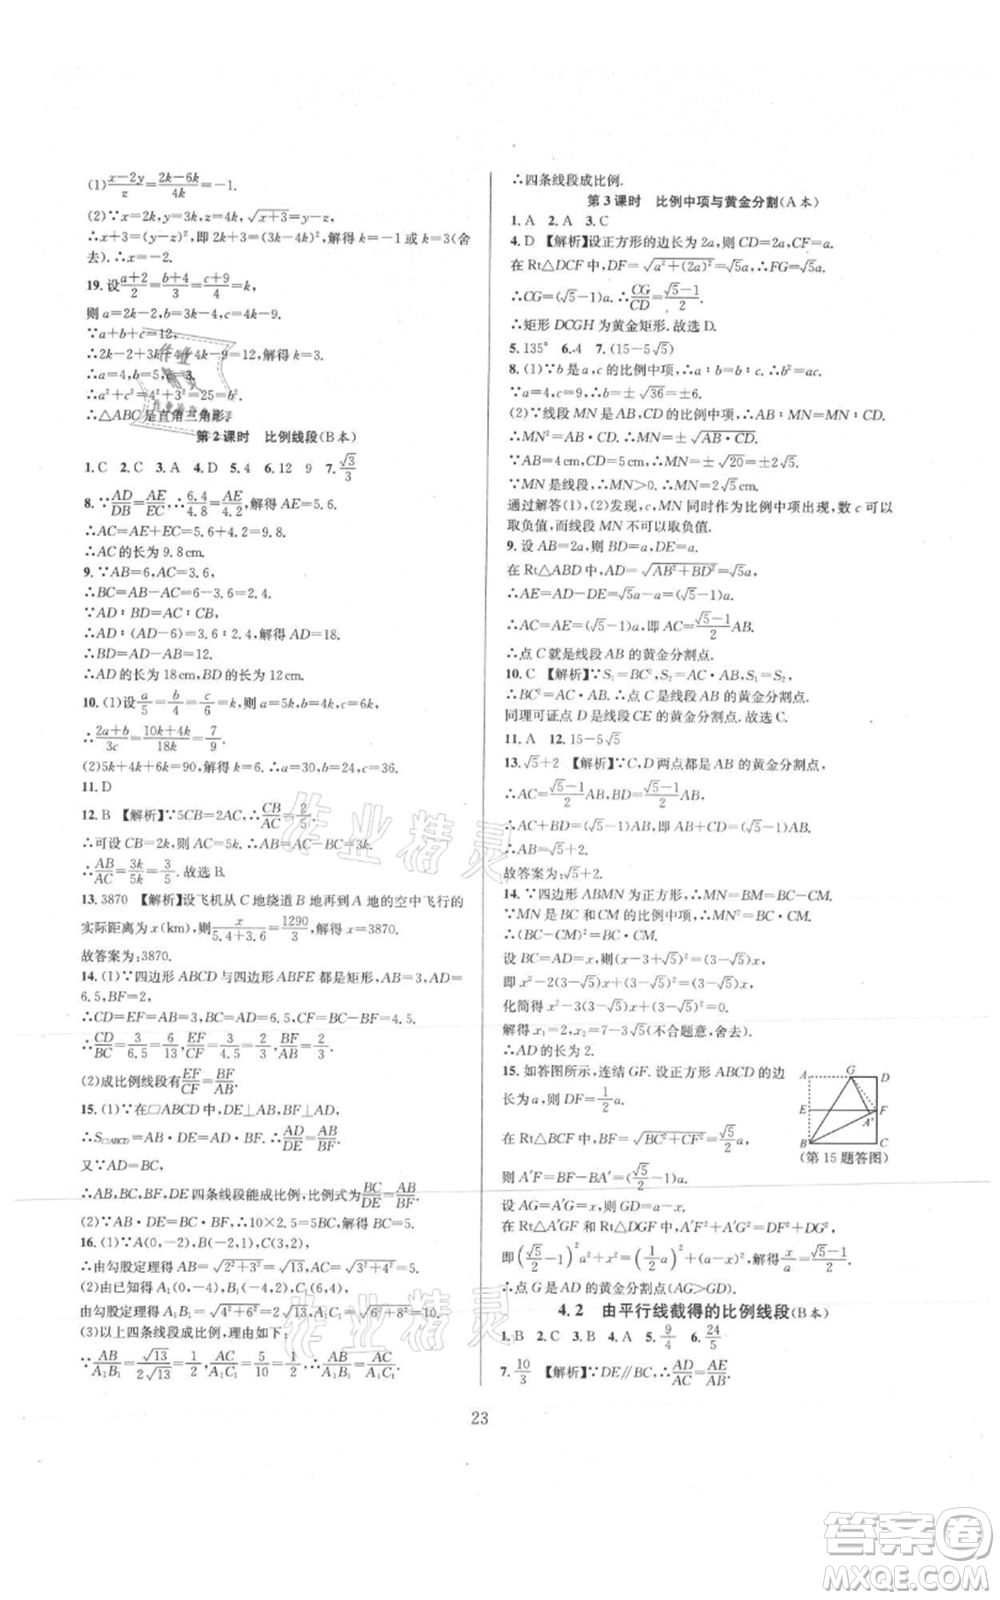 (1)\frac{x-2y}{z}=\frac{2k-6k}{4k}=-1.
(2)∵x=2k,y=3k,z=4k,\sqrt{x+3}=z-y,
∴x+3=(z-y)²,即2k+3=(4k-3k)²,解得k=-1或k=3(舍
去).∴x=-2.
19.设\frac{a+2}{3}=\frac{b}{4}=\frac{c+9}{4}=k,
则a=2k-2,b=4k-3,
∵a+b+c=12,
=12,解得k=3.
∴a=4,b=5,c=3.
∵a²=4²+3²=5²=b²,
∴△ABC是直角三角形.
第2课时 比例线段(B本)
1.C 2.C 3.A 4.D 5.4 6.12 9 7.\frac{\sqrt{3}}{3}
8.∵\frac{AD}{DB}=\frac{AE}{EC},∴\frac{6.4}{4.8}=\frac{AE}{4.2},解得AE=5.6.
∴AC=AE+EC=5.6+4.2=9.8.
∴AC的长为9.8cm.
9.∵AB=6,AC=3.6,
∴BC=AB-AC=6-3.6=2.4.
∵AD∶BD=AC∶CB,
∴AD∶(AD-6)=3.6∶2.4,解得AD=18.
∴BD=AD-AB=12.
∴AD的长为18cm,BD的长为12cm.
10.(1)设\frac{a}{5}=\frac{b}{4}=\frac{c}{6}=k,则a=5k,b=4k,c=6k,
∴\frac{2a+b}{3c}=\frac{10k+4k}{18k}=\frac{7}{9}.
(2)5k+4k+6k=90,解得k=6.∴a=30,b=24,c=36.
11.D
12.B 【解析】∵5CB=2AC,∴\frac{CB}{AC}=\frac{2}{5}.
∴可设CB=2k,AC=5k.∴AB=3k.
∴\frac{AB}{AC}=\frac{3k}{5k}=\frac{3}{5}.故选B.
13.3870 【解析】设飞机从C地绕道B地再到A地的空中飞行的
实际距离为x(km),则\frac{x}{5.4+3.6}=\frac{1290}{3},解得x=3870.
故答案为:3870.
14.(1)∵四边形ABCD与四边形ABFE都是矩形,AB=3,BC=
6.5,BF=2,
∴CD=EF=AB=3,CF=BC-BF=4.5.
∴\frac{CD}{BC}=\frac{3}{6.5}=\frac{6}{13},\frac{EF}{CF}=\frac{3}{4.5}=\frac{2}{3},\frac{BF}{AB}=\frac{2}{3}.
(2)成比例线段有\frac{EF}{CF}=\frac{BF}{AB}.
15.(1)∵在□ABCD中,DE⊥AB,BF⊥AD,
∴S□ABCD=AB·DE=AD·BF.∴\frac{AD}{DE}=\frac{AB}{BF}.
又∵AD=BC,
∴AB,BC,BF,DE四条线段能成比例,比例式为\frac{BC}{DE}=\frac{AB}{BF}.
(2)∵AB·DE=BF·BC,∴10×2.5=5BF,解得BF=5.
16.(1)∵A(0,-2),B(-2,1),C(3,2),
∴由勾股定理得AB=\sqrt{2²+3²}=\sqrt{13},AC=\sqrt{3²+4²}=5.
(2)由已知得A₁(0,-4),B₁(-4,2),C₁(6,4),
由勾股定理得A₁B₁=\sqrt{4²+6²}=2\sqrt{13},A₁C₁=\sqrt{6²+8²}=10.
(3)以上四条线段成比例,理由如下:
∵\frac{AB}{A₁B₁}=\frac{\sqrt{13}}{2\sqrt{13}}=\frac{1}{2},\frac{AC}{A₁C₁}=\frac{5}{10}=\frac{1}{2},∴\frac{AB}{A₁B₁}=\frac{AC}{A₁C₁}.
∴四条线段成比例.
第3课时 比例中项与黄金分割(A本)
1.A 2.A 3.C
4.D 【解析】设正方形的边长为2a,则CD=2a,CF=a.
在Rt△DCF中,DF=\sqrt{a²+(2a)²}=\sqrt{5}a,∴FG=\sqrt{5}a.
∴CG=(\sqrt{5}-1)a.∴\frac{CG}{CD}=\frac{\sqrt{5}-1}{2}.
∴矩形DCGH为黄金矩形.故选D.
5.135° 6.4 7.(15-5\sqrt{5})
8.(1)∵b是a,c的比例中项,∴a∶b=b∶c.∴b²=ac.
∵a=4,c=9,∴b=±\sqrt{36}=±6.
(2)∵线段MN是AB,CD的比例中项,∴AB∶MN=MN∶CD.
∴MN²=AB·CD.∴MN=±\sqrt{AB·CD}.
∵AB=4cm,CD=5cm,∴MN=±\sqrt{20}=±2\sqrt{5}.
∵MN是线段,∴MN>0.∴MN=2\sqrt{5}.
通过解答(1),(2)发现,c,MN同时作为比例中项出现,数c可以
取负值,而线段MN不可以取负值.
9.设AB=2a,则BD=a,DE=BD=a.
在Rt△ABD中,AD=\sqrt{AB²+BD²}=\sqrt{5}a.
∴AE=AD-DE=\sqrt{5}a-a=(\sqrt{5}-1)a.
∴AC=AE=(\sqrt{5}-1)a,即AC=\frac{\sqrt{5}-1}{2}AB.
∴点C就是线段AB的黄金分割点.
10.C 【解析】∵S₁=BC²,S₂=AC·AB,S₁=S₂,
∴BC²=AC·AB.∴点C是线段AB的黄金分割点.
同理可证点D是线段CE的黄金分割点.故选C.
11.A 12.15-5\sqrt{5}
13.\sqrt{5}+2 【解析】∵C,D两点都是AB的黄金分割点,
∴AC=\frac{\sqrt{5}-1}{2}AB,BD=\frac{\sqrt{5}-1}{2}AB.
∴AC+BD=(\sqrt{5}-1)AB,即AB+CD=(\sqrt{5}-1)AB.
∴AB=\sqrt{5}+2.
故答案为:\sqrt{5}+2.
14.∵四边形ABMN为正方形,∴MN=BM=BC-CM.
∵MN是BC和CM的比例中项,∴MN²=BC·CM.
∴(BC-CM)²=BC·CM.
设BC=x,则[x-(3-\sqrt{5})]²=(3-\sqrt{5})x,
即x²-2(3-\sqrt{5})x+(3-\sqrt{5})²=(3-\sqrt{5})x,
化简得x²-3(3-\sqrt{5})x+(3-\sqrt{5})²=0,
解得x₁=2,x₂=7-3\sqrt{5}(不合题意,舍去).
∴AD的长为2.
15.如答图所示,连结GF.设正方形ABCD的边
长为a,则CF=DF=\frac{1}{2}a.
在Rt△BCF中,BF=\sqrt{BC²+CF²}=\frac{\sqrt{5}}{2}a,
则A′F=BF-BA′=(\frac{\sqrt{5}}{2}-1)a.
设AG=A′G=x,则GD=a-x.
在Rt△A′GF和Rt△DGF中,A′F²+A′G²=DF²+DG²,
即(\frac{\sqrt{5}}{2}-1)²a²+x²=(\frac{1}{2}a)²+(a-x)²,解得\frac{x}{a}=\frac{\sqrt{5}-1}{2}.
∴点G是AD的黄金分割点(AG>GD).
A G D
E F
A′
B C
(第15题答图)
4.2 由平行线截得的比例线段(B本)
1.B 2.C 3.B 4.A 5.\frac{9}{4} 6.\frac{24}{5}
7.\frac{10}{3} 【解析】∵DE∥BC,∴\frac{AD}{AC}=\frac{AE}{AB}
23
作业精灵
作业精灵
作业精灵
答案圈
MXQE.COM